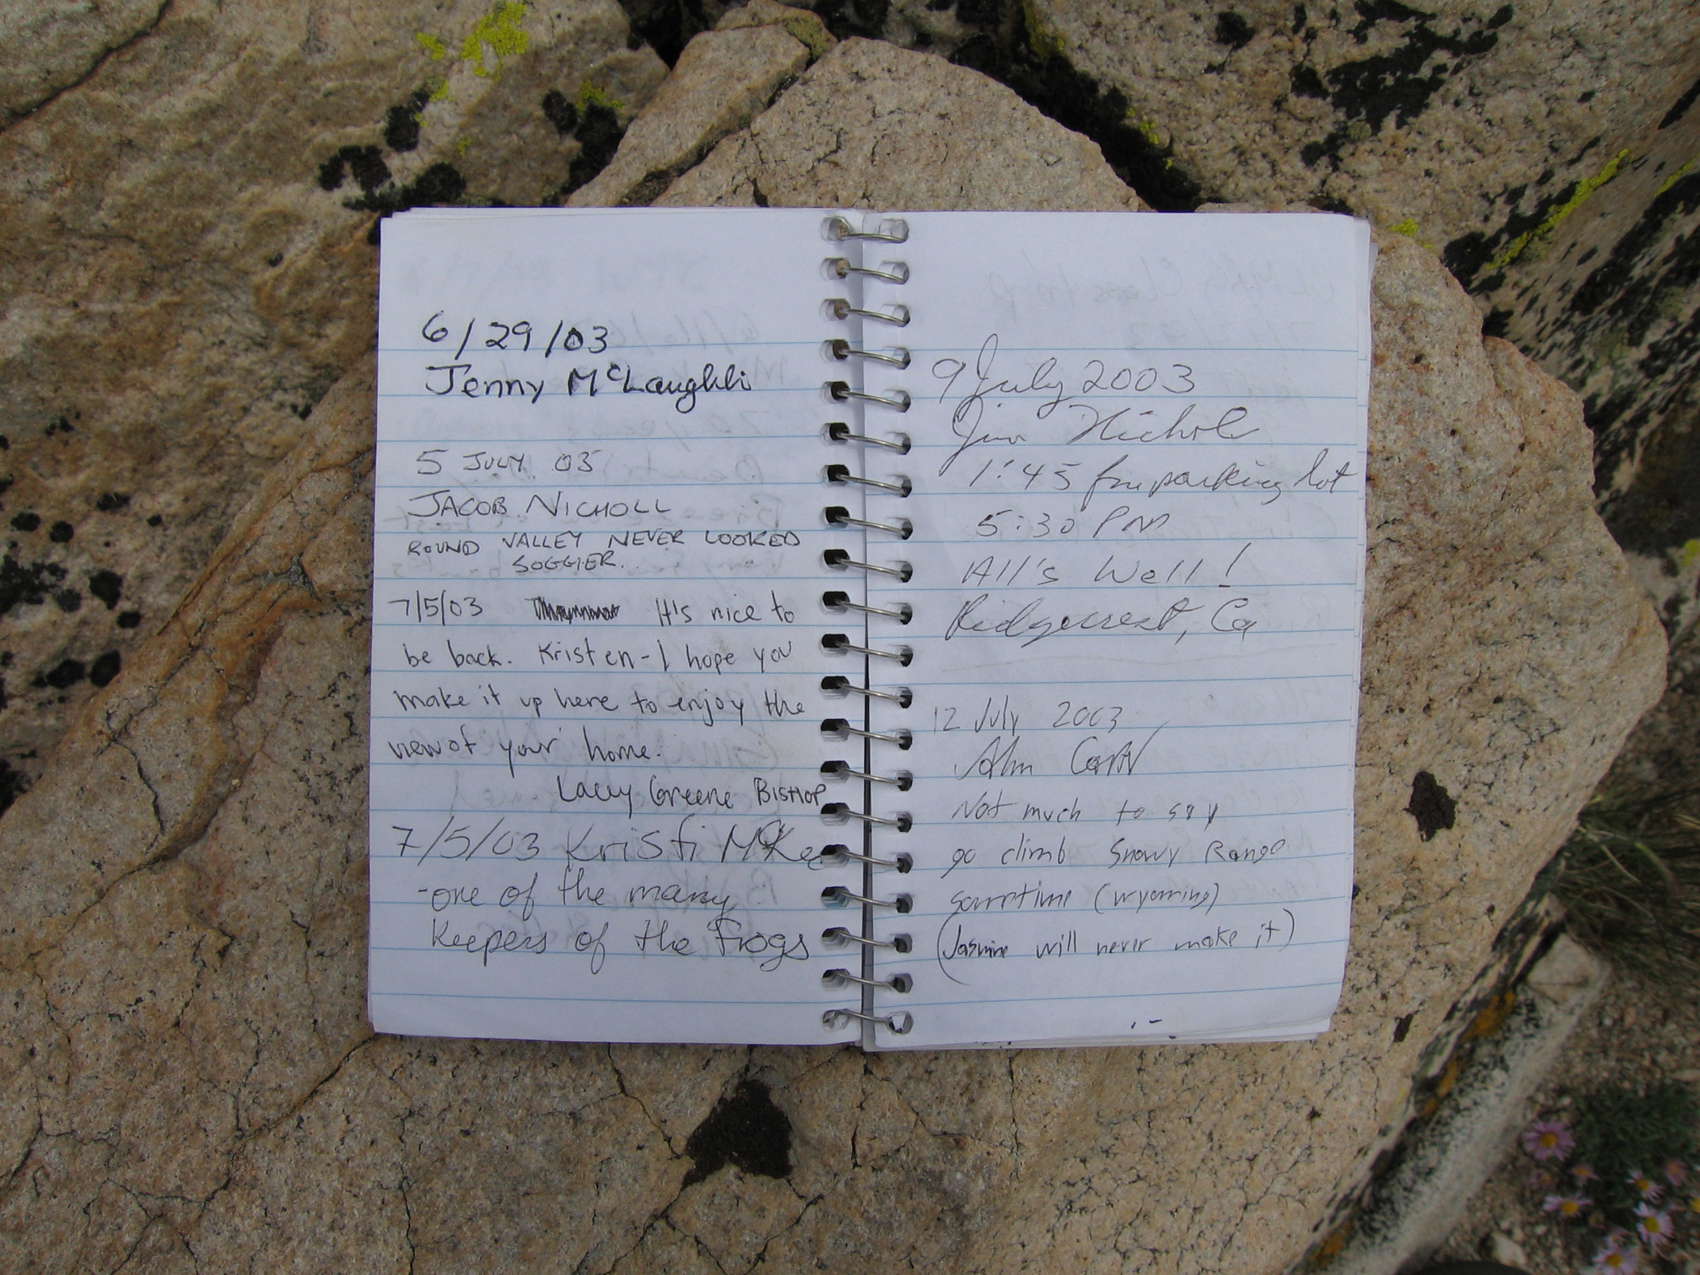 6/29/03
Jenny McLaughli
5 JULY 03
JACOB NICHOLL
ROUND VALLEY NEVER LOOKED
SOGGIER.
7/5/03 It's nice to
be back. Kristen - I hope you
make it up here to enjoy the
view of your home.
Lacey Greene BISHOP
7/5/03 Kristi McKe
-one of the many
Keepers of the Frogs
9 July 2003
Jim Nichols
1:45 fm parking lot
5:30 PM
All's Well!
Ridgecrest, Ca
12 July 2003
John
Not much to say
go climb Snowy Range
sometime (wyoming)
(Jasmine will never make it)